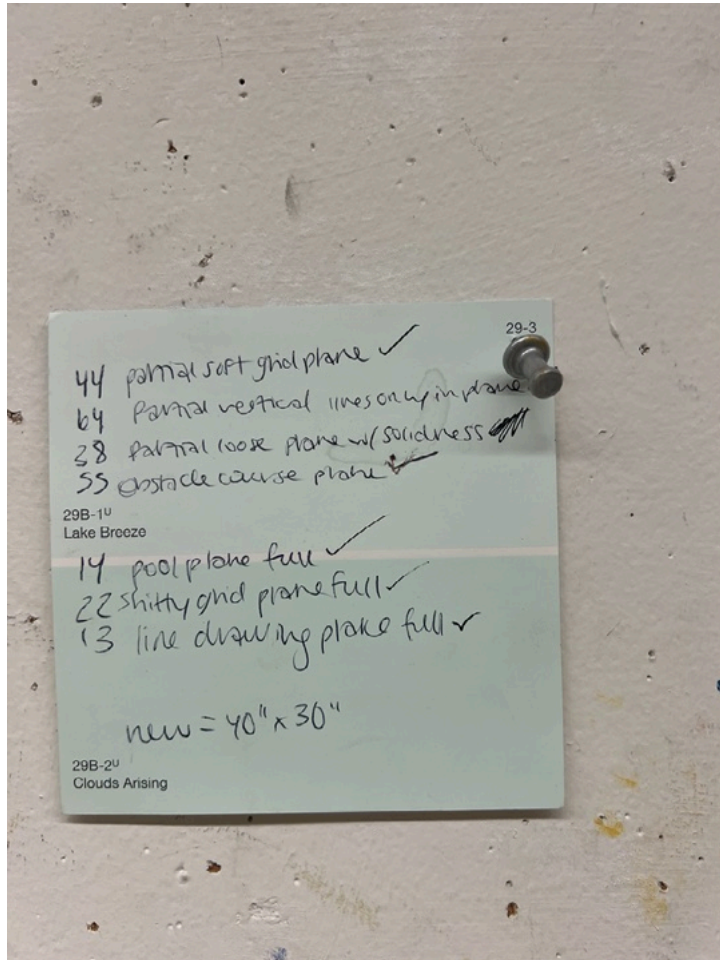 29-3
44 partial soft grid plane ✓
64 Partial vertical lines only in plane
38 Partial loose plane w/ solidness
55 obstacle course plane ✓
29B-1U
Lake Breeze
14 pool plane full ✓
22 shitty grid plane full ✓
13 line drawing plane full ✓
new = 40" x 30"
29B-2U
Clouds Arising